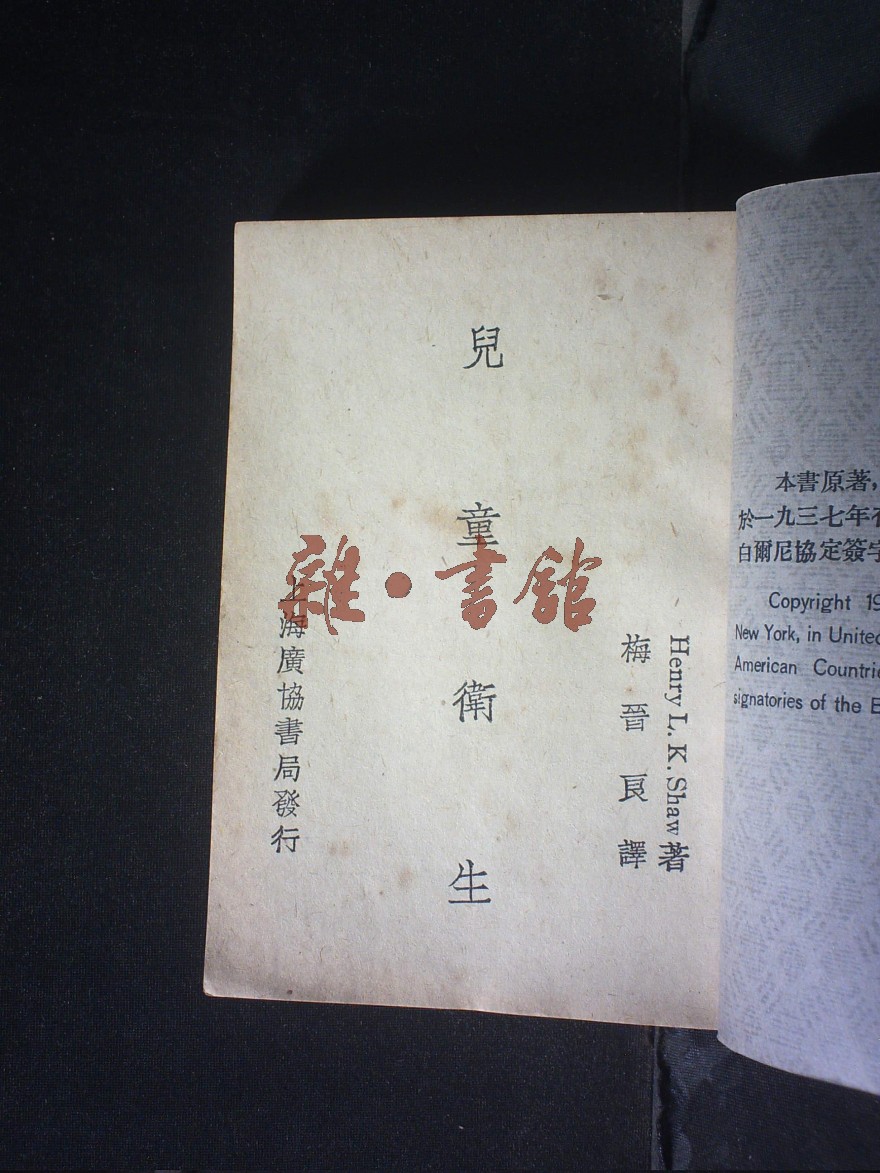 Henry L. K. Shaw 著
梅晉良譯
兒童衛生
上海廣協書局發行
雜·書館
本書原著，
於一九三七年
白爾尼協定簽字
Copyright 19
New York, in United
American Countrie
signatories of the B